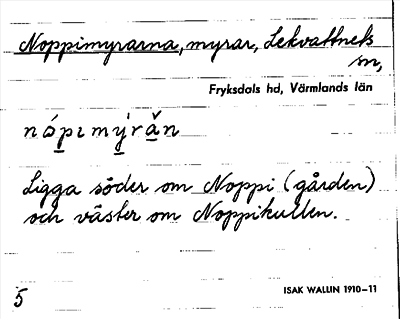 Noppimyrarna, myrar, Lekvattnets
sn,
Fryksdals hd, Värmlands län
nópımýrǎn
Ligga söder om Noppi (gården)
och väster om Noppikullen.
5
ISAK WALLIN 1910–11